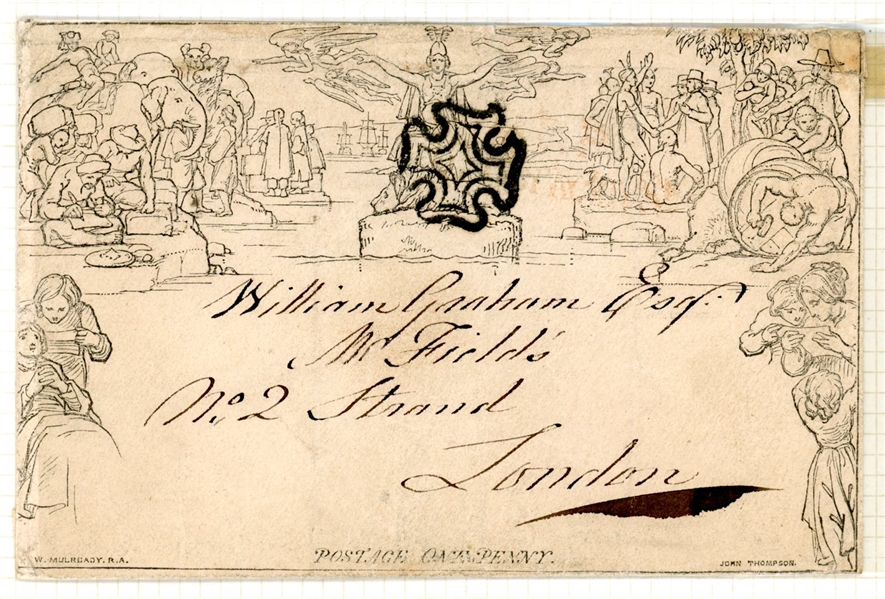 William Graham Esqr.
Mr Field's
No. 2 Strand
London
POSTAGE ONE PENNY.
W. MULREADY. R.A.
JOHN THOMPSON.